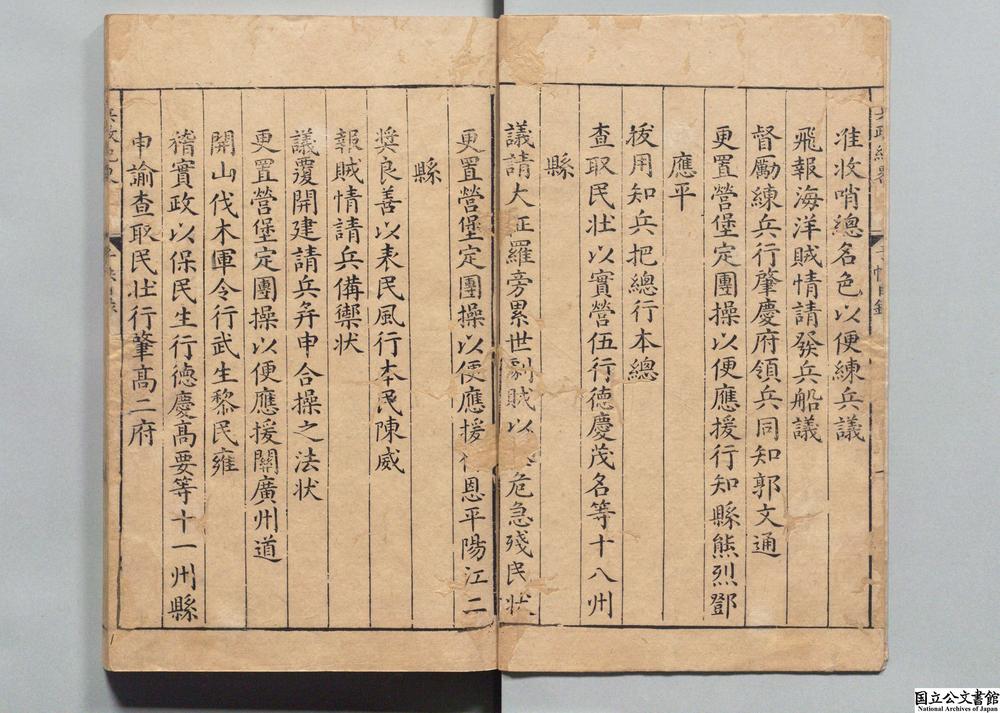 准收哨總名色以便練兵議
飛報海洋賊情請發兵船議
督勵練兵行肇慶府領兵同知郭文通
更置營堡定團操以便應援行知縣熊烈鄧
應平
拔用知兵把總行本總
查取民壯以實營伍行德慶茂名等十八州
縣
議請大征羅旁累世劇賊以危急殘民状
更置營堡定團操以便應援恩平陽江二
縣
奬良善以表民風行本民陳威
報賊情請兵備禦状
議覆開建請兵弁申合操之法状
更置營堡定團操以便應援關廣州道
開山伐木軍令行武生黎民雍
稽實政以保民生行德慶高要等十一州縣
申諭查取民壮行肇高二府
国立公文書館
National Archives of Japan